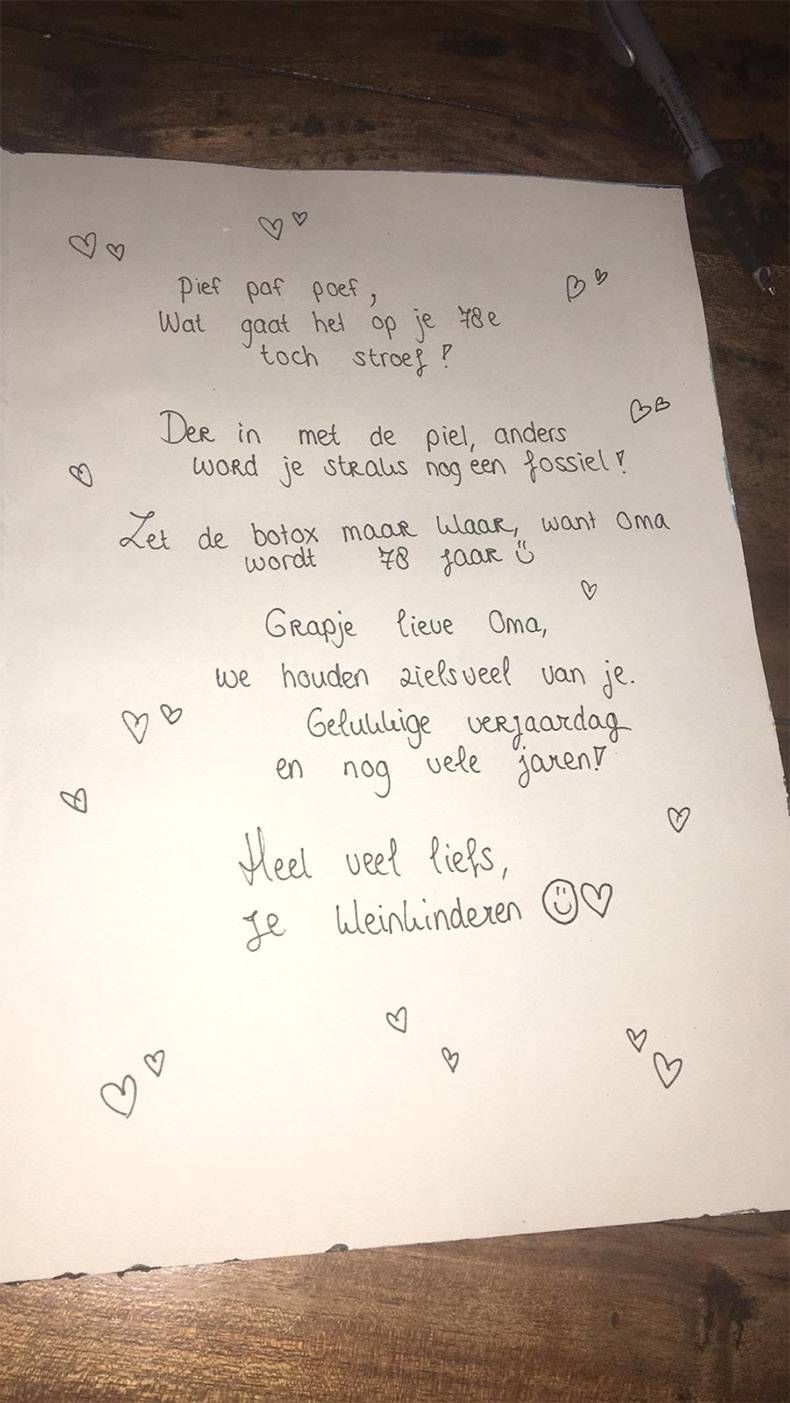 Pief paf poef,
Wat gaat het op je 78e
toch stroef!
Der in met de piel, anders
word je straks nog een fossiel!
Zet de botox maar klaar, want Oma
wordt 78 jaar
Grapje lieve Oma,
we houden zielsveel van je.
Gelukkige verjaardag
en nog vele jaren!
Heel veel liefs,
Je kleinkinderen